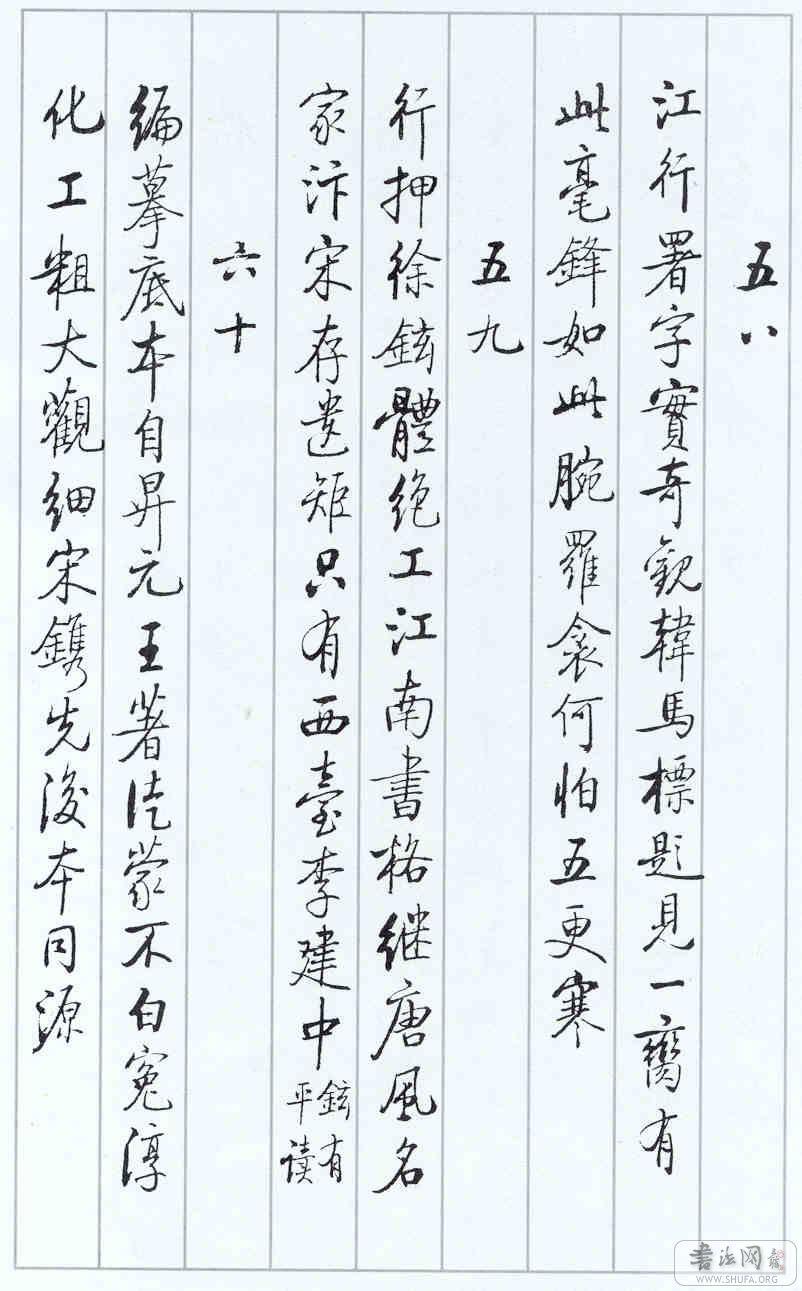 五八
江行署字實奇觀韓馬標題見一臠有
此毫鋒如此腕羅衾何怕五更寒
五九
行押徐鉉體絕工江南書格继唐風名
家汴宋存遺矩只有西臺李建中鉉有平读
六十
編摹底本自昇元王著徒蒙不白冤淳
化工粗大觀细宋鐫先後本同源
书法网
WWW.SHUFA.ORG